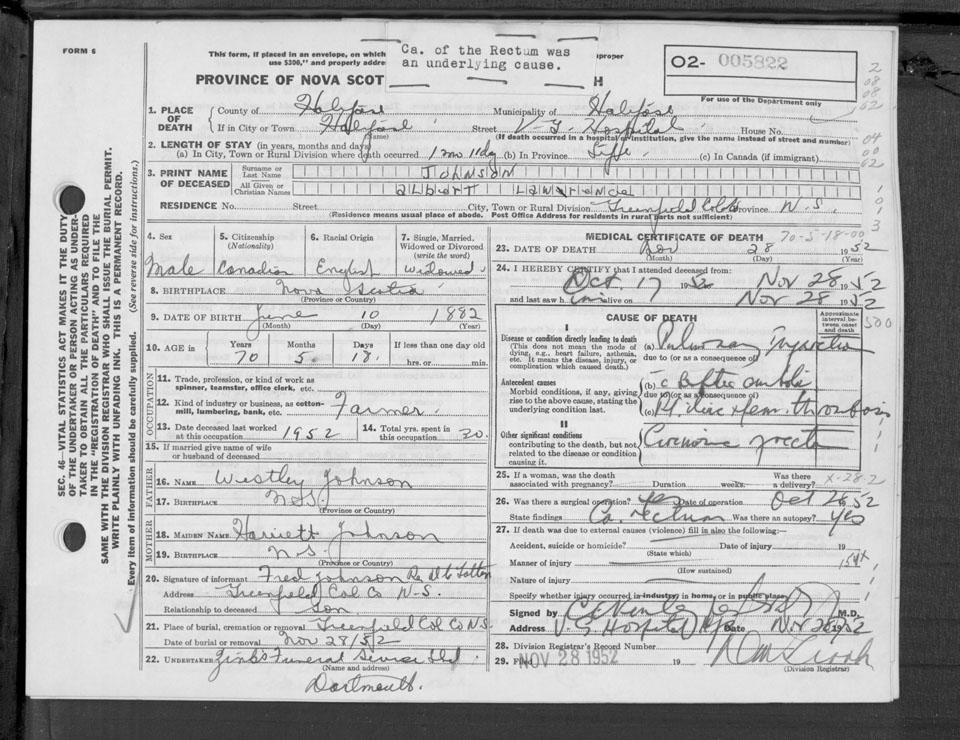 FORM 6
This form, if placed in an envelope, on which
use $300," and properly addre
Ca. of the Rectum was
an underlying cause.
mproper
02- 005822
For use of the Department only
PROVINCE OF NOVA SCOT H
2
08
08
02
04
00
02
1. PLACE OF DEATH
County of Halifax Municipality of Halifax
If in City or Town Halifax Street V. G. Hospital House No.
(Name) (If death occurred in a hospital or institution, give the name instead of street and number)
2. LENGTH OF STAY (in years, months and days)
(a) In City, Town or Rural Division where death occurred 1 mo 11 dy (b) In Province Life. (c) In Canada (if immigrant)
3. PRINT NAME OF DECEASED
Surname or Last Name JOHNSON
All Given or Christian Names Albert Lawrence
RESIDENCE No. Street City, Town or Rural Division Greenfield Col. Co Province N.S.
(Residence means usual place of abode. Post Office Address for residents in rural parts not sufficient)
4. Sex Male
5. Citizenship (Nationality) Canadian
6. Racial Origin English
7. Single, Married, Widowed or Divorced (write the word) Widowed
8. BIRTHPLACE Nova Scotia
(Province or Country)
9. DATE OF BIRTH June 10 1882
(Month) (Day) (Year)
10. AGE in Years Months Days If less than one day old
70 5 18 hrs. or min.
OCCUPATION
11. Trade, profession, or kind of work as
spinner, teamster, office clerk, etc.
12. Kind of industry or business, as cotton-
mill, lumbering, bank, etc. Farmer.
13. Date deceased last worked at this occupation 1952
14. Total yrs. spent in this occupation 30.
15. If married give name of wife
or husband of deceased
FATHER
16. NAME Westley Johnson
17. BIRTHPLACE N.S.
(Province or Country)
MOTHER
18. MAIDEN NAME Harriett Johnson
19. BIRTHPLACE N.S.
(Province or Country)
20. Signature of informant Fred Johnson
Address Greenfield Col Co N.S.
Relationship to deceased Son
21. Place of burial, cremation or removal Greenfield Col Co N.S.
Date of burial or removal Nov 28/52
22. UNDERTAKER Zink's Funeral Service Ltd
(Name and address)
Dartmouth.
MEDICAL CERTIFICATE OF DEATH 70-5-18-00
23. DATE OF DEATH Nov 28 1952
(Month) (Day) (Year)
24. I HEREBY CERTIFY that I attended deceased from:
Oct. 17 1952 to Nov 28 1952
and last saw him alive on Nov 28 1952
CAUSE OF DEATH
Approximate interval between onset and death
I
Disease or condition directly leading to death
(This does not mean the mode of dying, e.g., heart failure, asthenia, etc. It means the disease, injury, or complication which caused death.)
(a) Pulmonary Infarction
due to (or as a consequence of)
Antecedent causes
Morbid conditions, if any, giving rise to the above cause, stating the underlying condition last.
(b)
due to (or as a consequence of)
(c)
II
Other significant conditions
contributing to the death, but not related to the disease or condition causing it.
Carcinoma recto
25. If a woman, was the death
associated with pregnancy? Duration weeks. Was there a delivery?
26. Was there a surgical operation? Yes Date of operation Oct 26 52
State findings Ca. rectum Was there an autopsy? Yes
27. If death was due to external causes (violence) fill in also the following:—
Accident, suicide or homicide? Date of injury 19
(State which)
Manner of injury 154X
(How sustained)
Nature of injury
Specify whether injury occurred in industry, in home, or in public place
Signed by M.D.
Address V. G. Hospital Hfx Date Nov 28 1952
28. Division Registrar's Record Number
29. Filed NOV 28 1952 19
(Division Registrar)
SEC. 46—VITAL STATISTICS ACT MAKES IT THE DUTY
OF THE UNDERTAKER OR PERSON ACTING AS UNDER-
TAKER TO OBTAIN ALL THE PARTICULARS REQUIRED
IN THE "REGISTRATION OF DEATH" AND TO FILE THE
SAME WITH THE DIVISION REGISTRAR WHO SHALL ISSUE THE BURIAL PERMIT.
WRITE PLAINLY WITH UNFADING INK. THIS IS A PERMANENT RECORD.
Every item of information should be carefully supplied. (See reverse side for instructions.)